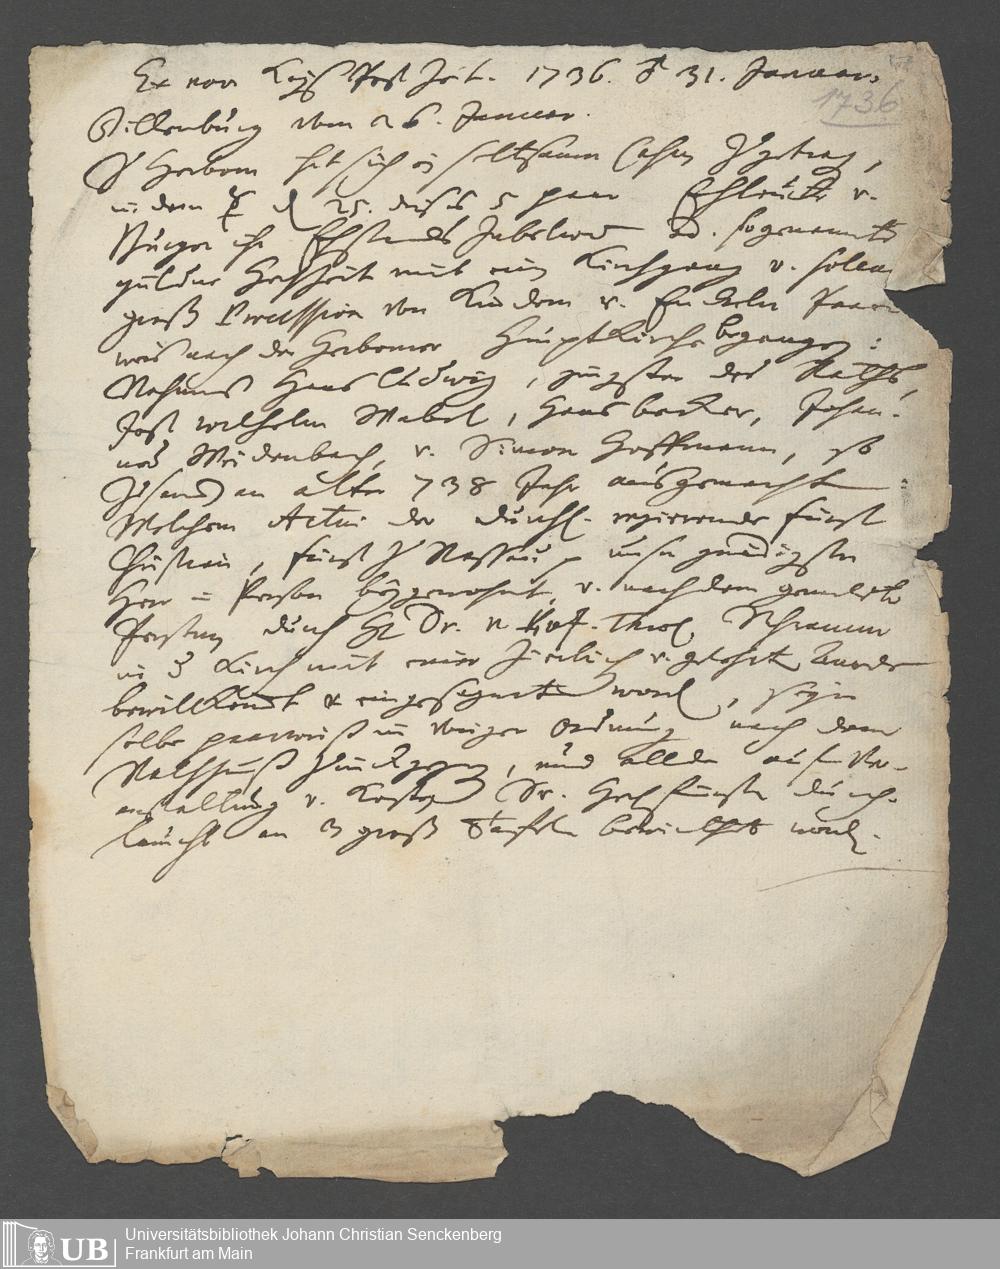 Ex von Kays. Post Zeit. 1736. d 31. Januar.
1736
Dillenburg vom 26. Januar.
Zu Herborn hat sich ein seltsamer Casus zugetragen,
indem d 25. dieses 5 paar Eheleute v.
Bürger ihr Ehstands Jubelaeum od. sogenannte
güldne Hochzeit mit ein Kirchgang v.
groß Procession von Kindern v. Enckeln Paar
weis nach der Herborner Hauptkirche begangen:
Nahmens Hans Ludwig, jüngster des Raths,
Jost Wilhelm Wabel, Hans becker, Johan-
nes Weidenbach, v. Simon Hoffmann, so
zusamen an alter 738 Jahr ausgemacht
Welchem Actui der durchl. regierende Fürst
Christian, Fürst zu Nassau unser gnädigster
Herr in Person beygewohnt, v. nach dem gemelte
Personen durch H Dr. v Prof. Theol. Schramm
in d Kirch mit einer zierlich v. gelehrten
bewillkomt & eingesegnet word, seyn
selbe paarweiß in voriger Ordnung nach dem
Rathhauß zurückgegangen, und allda auf Ver-
anstaltung v. Kosten Sr. Hochfürstl. durch-
laucht an 3 groß Tafeln bewirthet word.
Universitätsbibliothek Johann Christian Senckenberg
Frankfurt am Main
UB